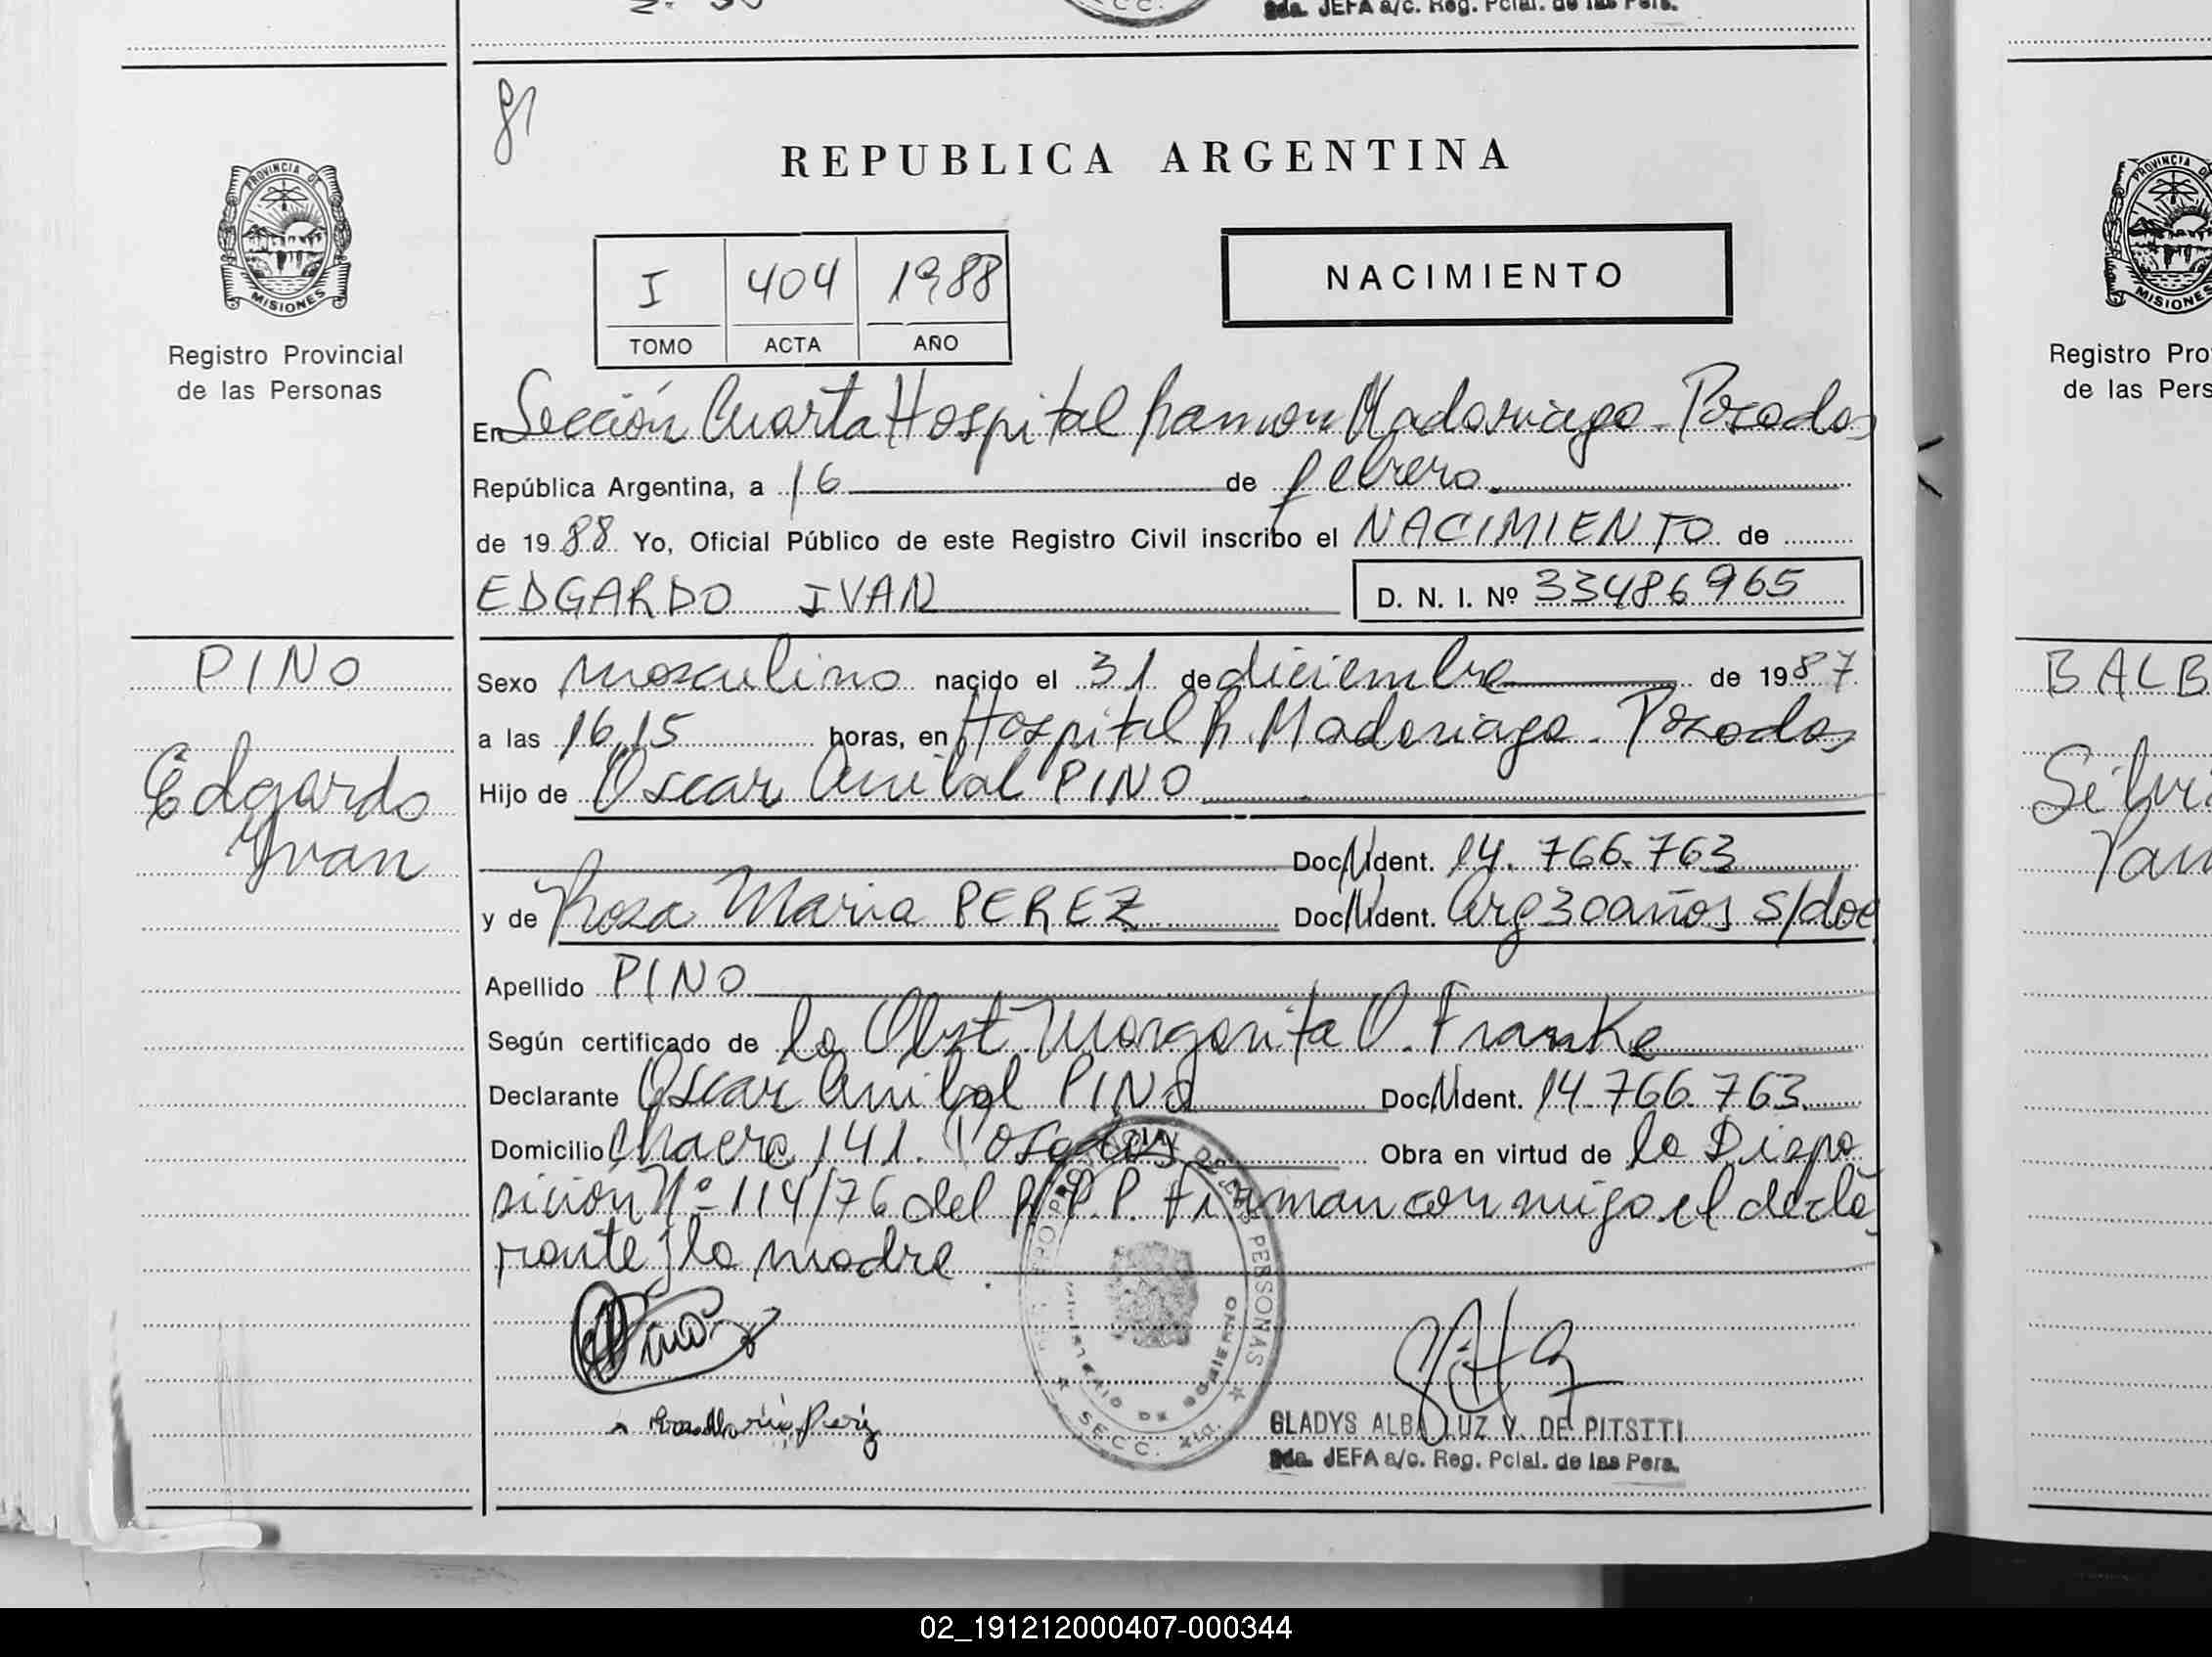 2da. JEFA a/c. Reg. Pcial. de las Pers.
81
PROVINCIA DE
MISIONES
Registro Provincial
de las Personas
PINO
Edgardo
Yvan
REPUBLICA ARGENTINA
I 404 1988
TOMO ACTA AÑO
NACIMIENTO
En Sección Cuarta Hospital Ramon Madariaga - Posadas
República Argentina, a 16 de febrero.
de 1988 Yo, Oficial Público de este Registro Civil inscribo el NACIMIENTO de
EDGARDO IVAN D. N. I. Nº 33486965
Sexo masculino nacido el 31 de diciembre de 1987
a las 16,15 horas, en Hospital R. Madariaga - Posadas
Hijo de Oscar Anibal PINO
Doc. Ident. 14.766.763
y de Rosa Maria PEREZ Doc. Ident. Arg 30 años s/doc
Apellido PINO
Según certificado de la Obst. Margarita O. Franke
Declarante Oscar Anibal PINO Doc. Ident. 14.766.763.
Domicilio Chacra 141. Posadas Obra en virtud de la Dispo
sición Nº 114/76 del R.P.P. Firman conmigo el decla
rante y la madre.
PROVINCIAL DE LAS PERSONAS
MINISTERIO DE GOBIERNO
SECC. 4ta.
Rosa Maria Perez
GLADYS ALBA LUZ V. DE PITSITTI
2da. JEFA a/c. Reg. Pcial. de las Pers.
PROVINCIA DE
MISIONES
Registro Pro
de las Pers
BALB
Silvi
02_191212000407-000344